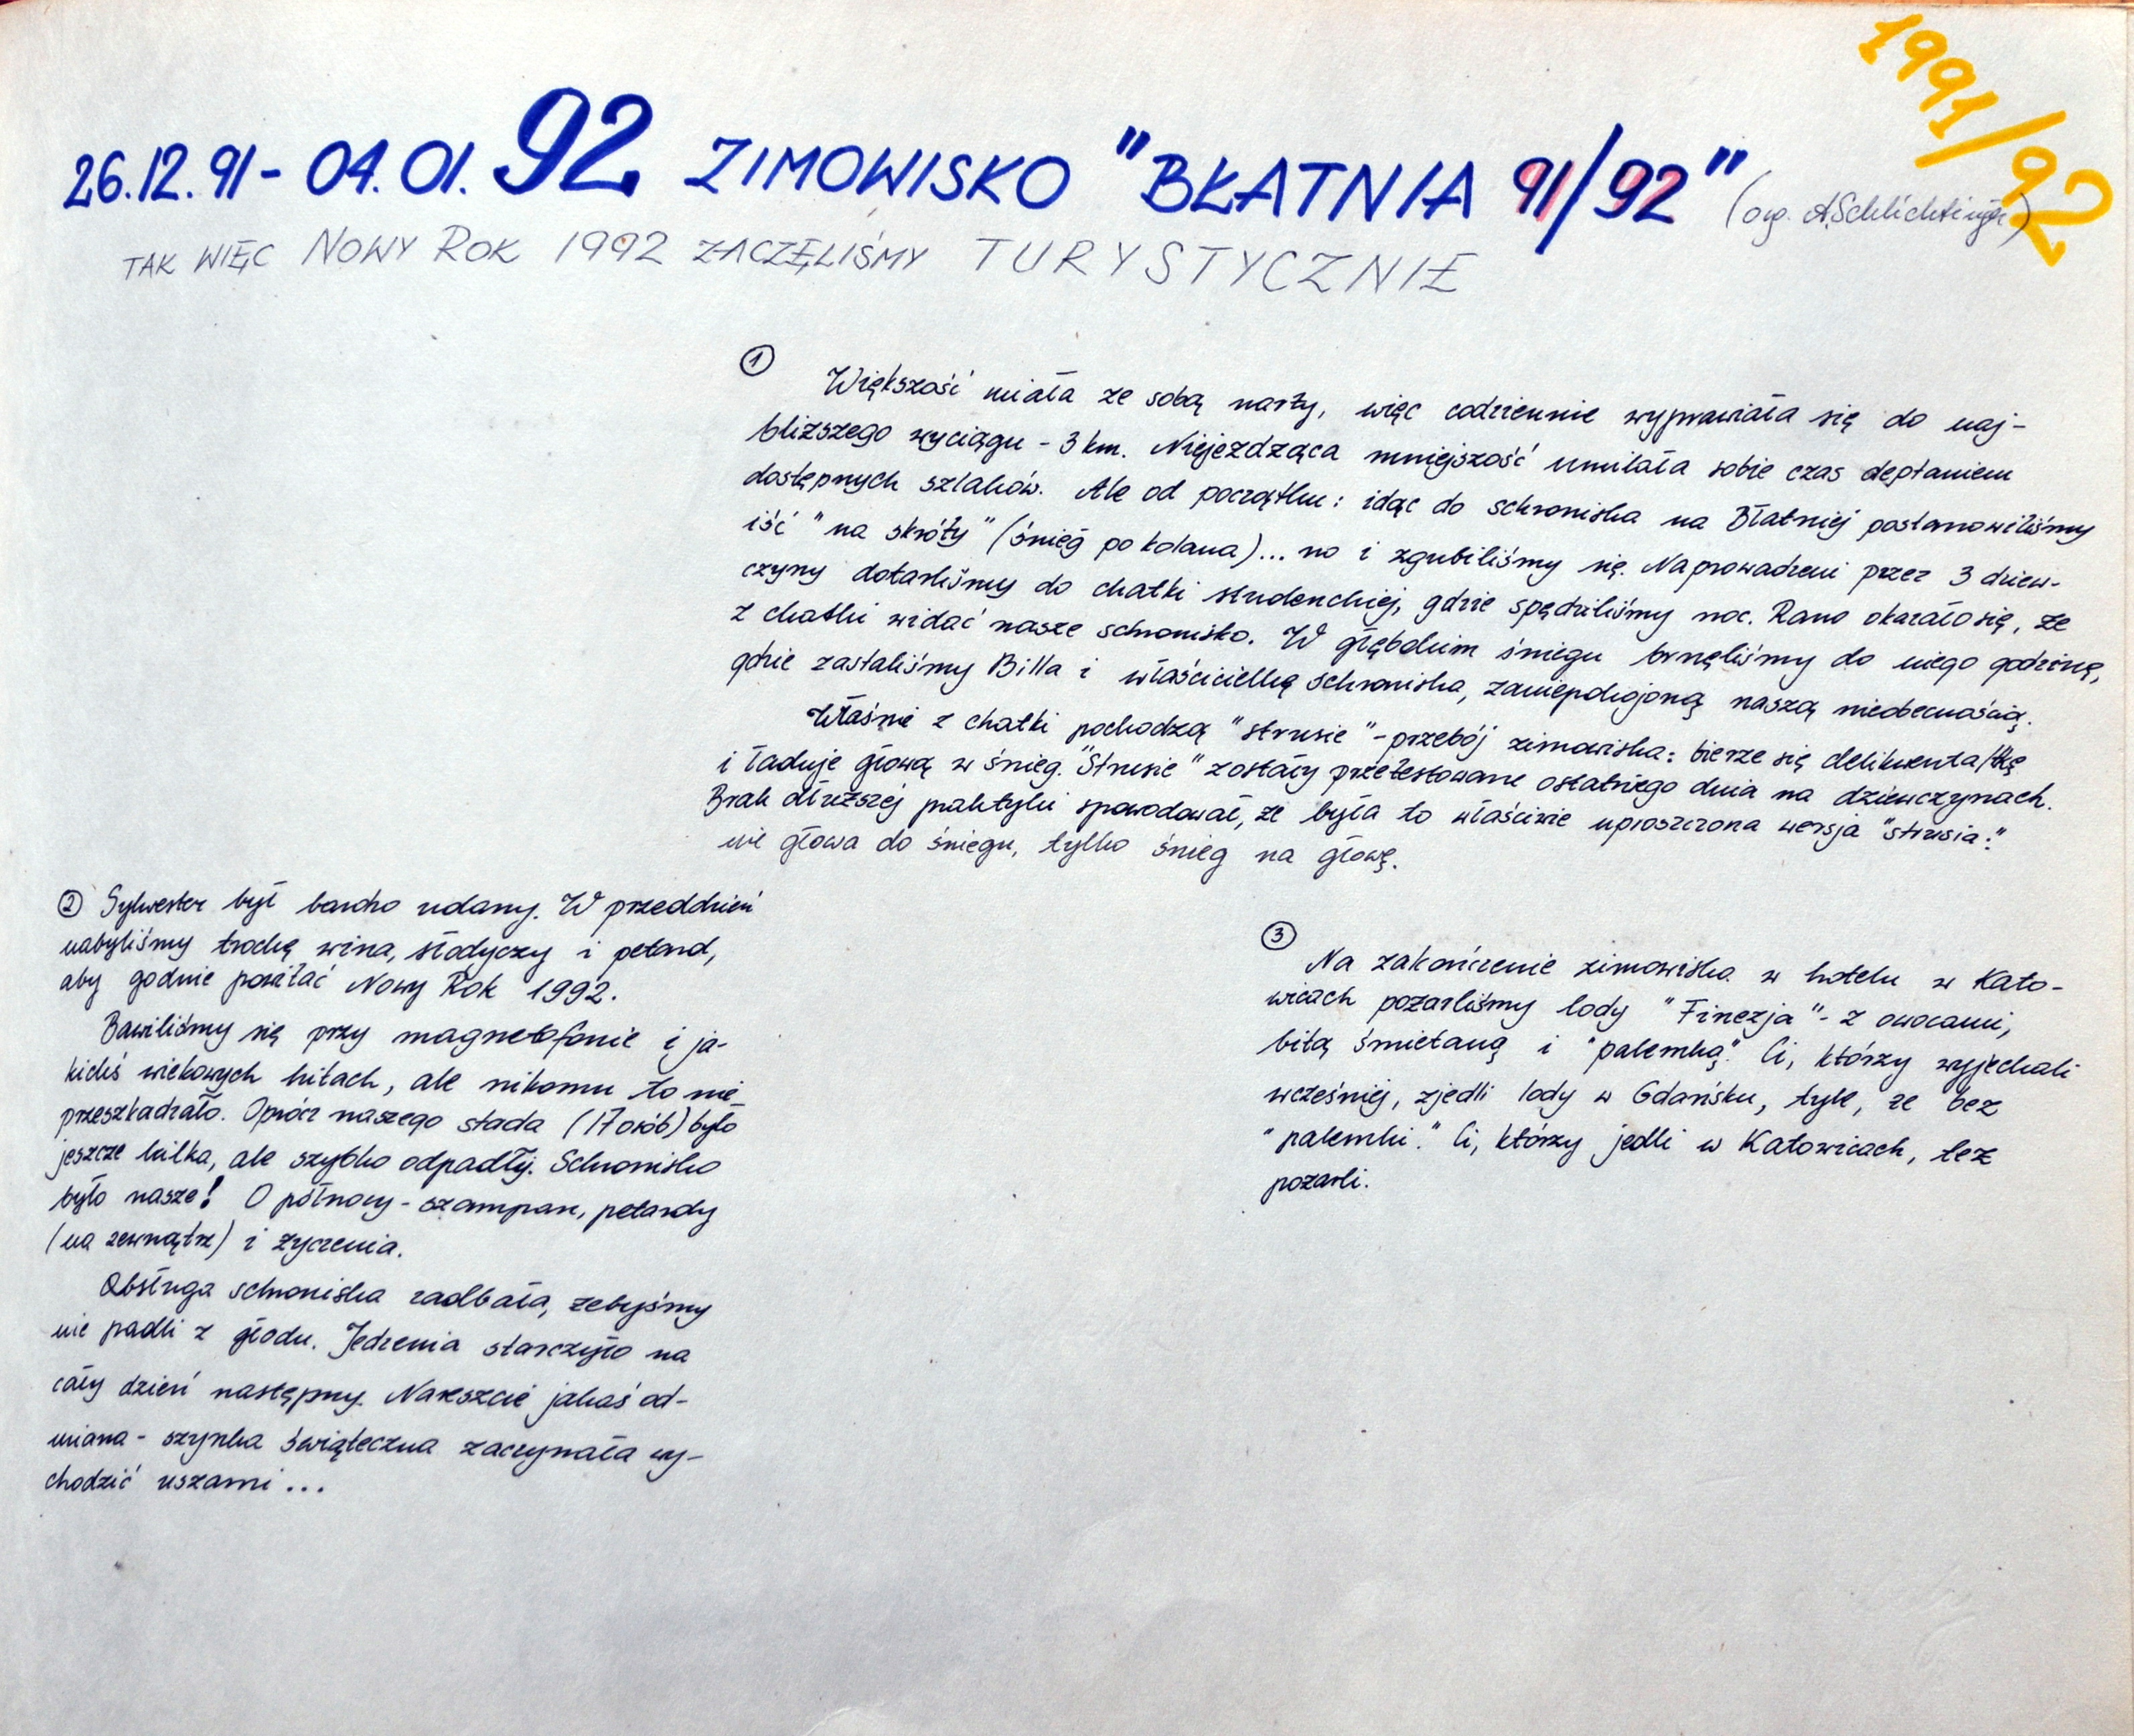 1991/92
26.12.91 - 04.01.92 ZIMOWISKO "BŁATNIA 91/92" (org. A.Schlichtinger)
TAK WIĘC NOWY ROK 1992 ZACZĘLIŚMY TURYSTYCZNIE
①
Większość miała ze sobą narty, więc codziennie wyprawiała się do naj-
bliższego wyciągu - 3 km. Niejeżdżąca mniejszość umilała sobie czas deptaniem
dostępnych szlaków. Ale od początku: idąc do schroniska na Błatniej postanowiliśmy
iść "na skróty" (śnieg po kolana)... no i zgubiliśmy się. Naprowadzeni przez 3 dziew-
czyny dotarliśmy do chatki studenckiej, gdzie spędziliśmy noc. Rano okazało się, że
z chatki widać nasze schronisko. W głębokim śniegu brnęliśmy do niego godzinę,
gdzie zastaliśmy Billa i właścicielkę schroniska, zaniepokojoną naszą nieobecnością.
Właśnie z chatki pochodzą "strusie" - przebój zimowiska: bierze się delikwenta/tkę
i ładuje głową w śnieg. "Strusie" zostały przetestowane ostatniego dnia na dziewczynach.
Brak dłuższej praktyki spowodował, że była to właściwie uproszczona wersja "strusia":
nie głowa do śniegu, tylko śnieg na głowę.
② Sylwester był bardzo udany. W przeddzień
nabyliśmy trochę wina, słodyczy i petard,
aby godnie powitać Nowy Rok 1992.
Bawiliśmy się przy magnetofonie i ja-
kichś wiekowych hitach, ale nikomu to nie
przeszkadzało. Oprócz naszego stada (17 osób) było
jeszcze kilka, ale szybko odpadły. Schronisko
było nasze! O północy - szampan, petardy
(na zewnątrz) i życzenia.
Obsługa schroniska zadbała, żebyśmy
nie padli z głodu. Jedzenia starczyło na
cały dzień następny. Nareszcie jakaś od-
miana - szynka świąteczna zaczynała wy-
chodzić uszami...
③
Na zakończenie zimowiska w hotelu w Kato-
wicach pożarliśmy lody "Finezja" - z owocami,
bitą śmietaną i "palemką". Ci, którzy wyjechali
wcześniej, zjedli lody w Gdańsku, tyle, że bez
"palemki." Ci, którzy jedli w Katowicach, też
pożarli.